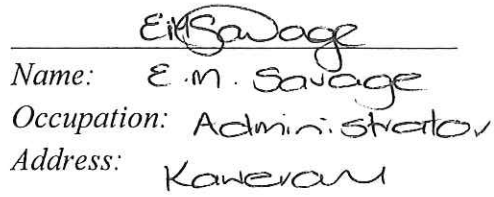 EMSavage
Name: E.M. Savage
Occupation: Administrator
Address: Kawerau